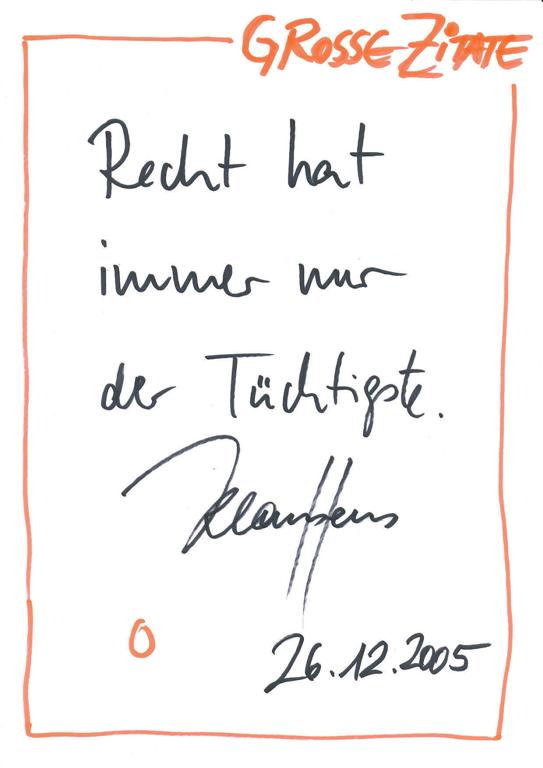 GROSSE ZITATE
Recht hat
immer nur
der Tüchtigste.
Klau//ens
0
26.12.2005